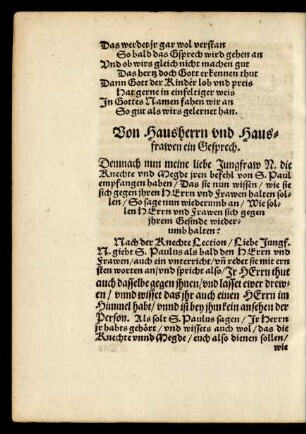 Das werdet jr gar wol verstan
So bald das Gsprech wird gehen an
Vnd ob wirs gleich nicht machen gut
Das hertz doch Gott erkennen thut
Dann Gott der Kinder lob vnd preis
Hat gerne in einfeltiger weis
In Gottes Namen fahen wir an
So gut als wirs gelernet han.
Von Hausherrn vnd Haus-
frawen ein Gesprech.
Demnach nun meine liebe Jungfraw N. die
Knechte vnd Megde jren befehl von S. Paul
empfangen haben / Das sie nun wissen / wie sie
sich gegen jhren HErrn vnd Frawen halten sol-
len / So sage nun wiederumb an / Wie sol-
len HErrn vnd Frawen sich gegen
jhrem Gesinde wieder-
umb halten?
Nach der Knechte Lection / Liebe Jungf.
N. giebt S. Paulus als bald den HErrn vnd
Frawen / auch ein vnterricht / vñ redet sie mit ern
sten worten an / vnd spricht also / Jr HErrn thut
auch dasselbe gegen jhnen / vnd lasset ewer drew-
en / vnnd wisset das jhr auch einen HErrn im
Himmel habt / vnnd ist bey jhm kein ansehen der
Person. Als solt S. Paulus sagen / Jr Herrn
jr habts gehört / vnd wissets auch wol / das die
Knechte vnnd Megde / euch also dienen sollen /
wie